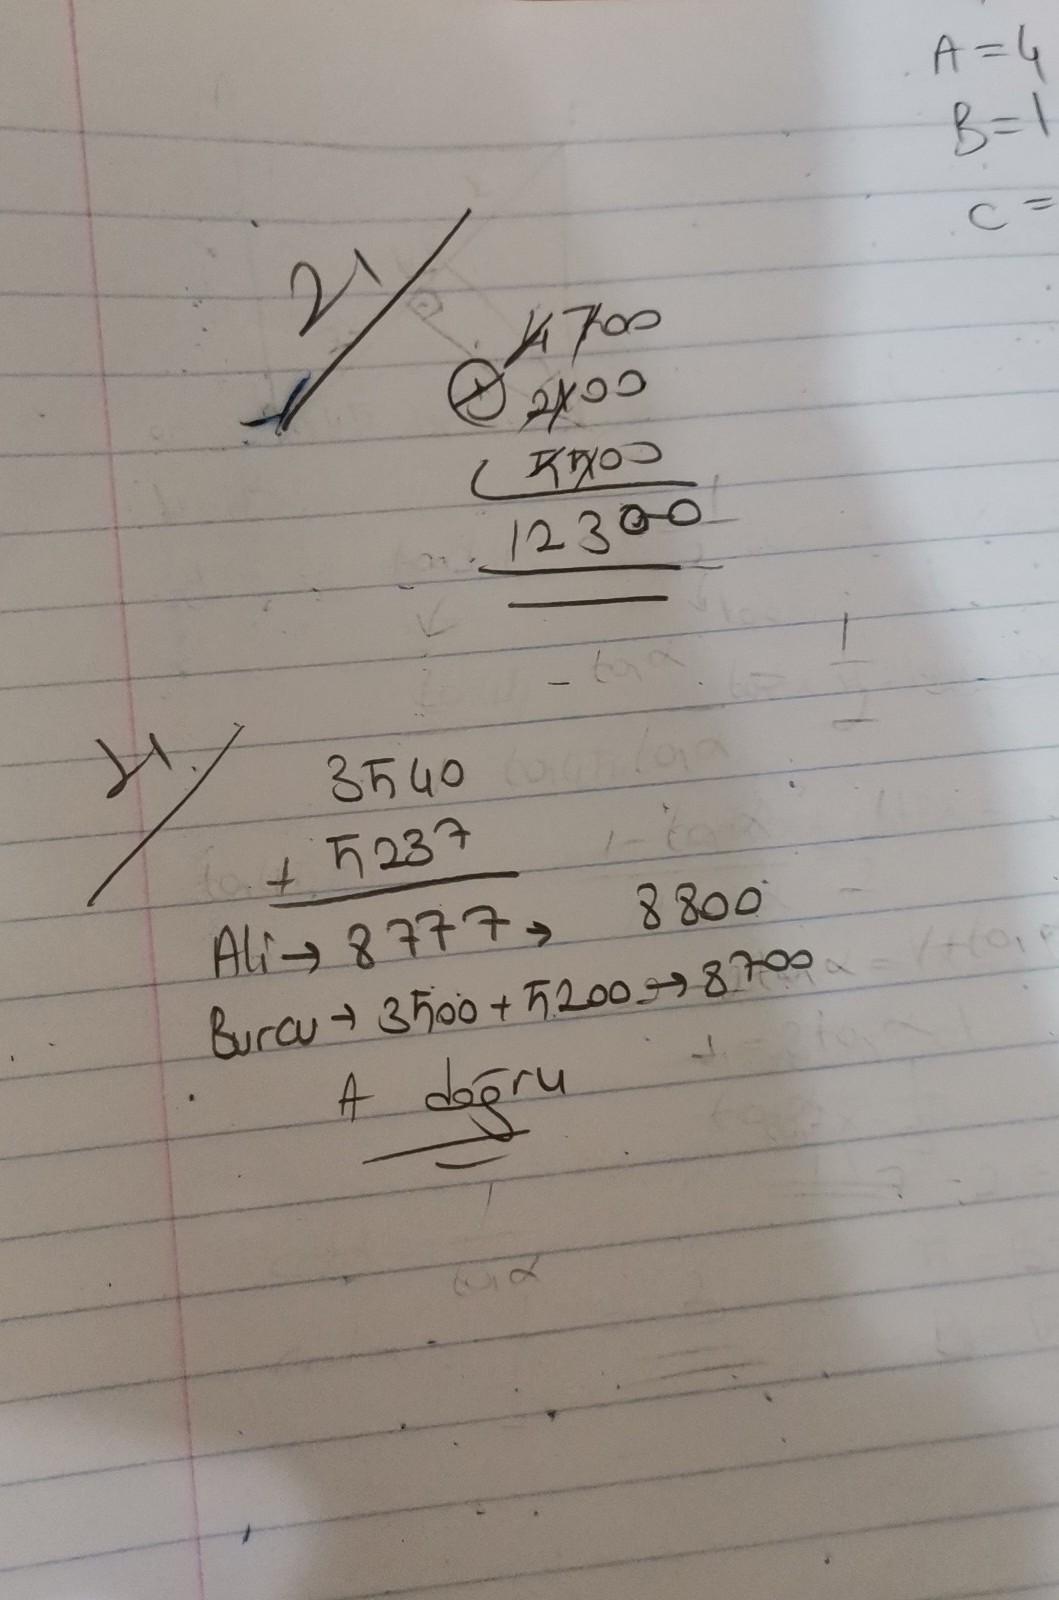 A = 4
B = 1
C =
21
4700
+ 2100
5500
12300
21
3540
+ 5237
Ali → 8777 → 8800
Burcu → 3500 + 5200 → 8700
A doğru